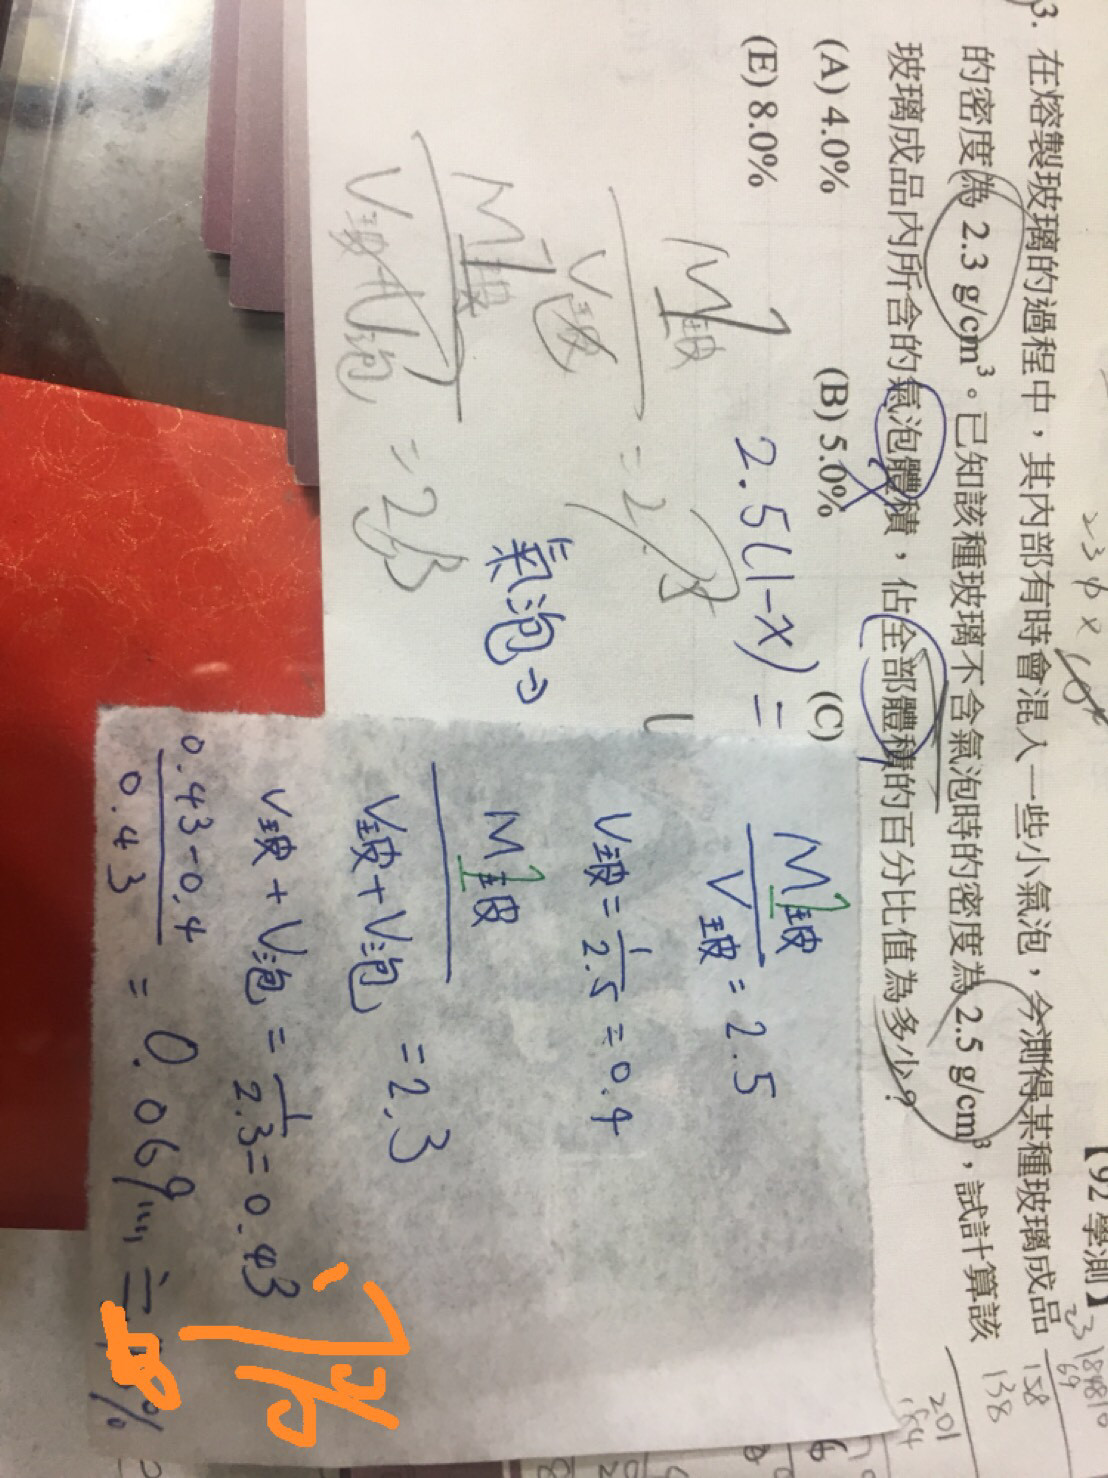 3. 在熔製玻璃的過程中，其內部有時會混入一些小氣泡，今測得某種玻璃成品
的密度為 2.3 g/cm³。已知該種玻璃不含氣泡時的密度為 2.5 g/cm³，試計算該
玻璃成品內所含的氣泡體積，佔全部體積的百分比值為多少？
【92 學測】
(A) 4.0%
(B) 5.0%
(C)
(E) 8.0%
2.5(1-x) =
氣泡→
M玻
V玻
M玻
V玻+V泡
= 2.3
M玻
V玻 = 2.5
V玻 = 1/2.5 = 0.4
M玻
V玻+V泡 = 2.3
V玻+V泡 = 1/2.3 = 0.43
0.43-0.4
0.43
= 0.069…
%
7%
23
69
158
138
201
184